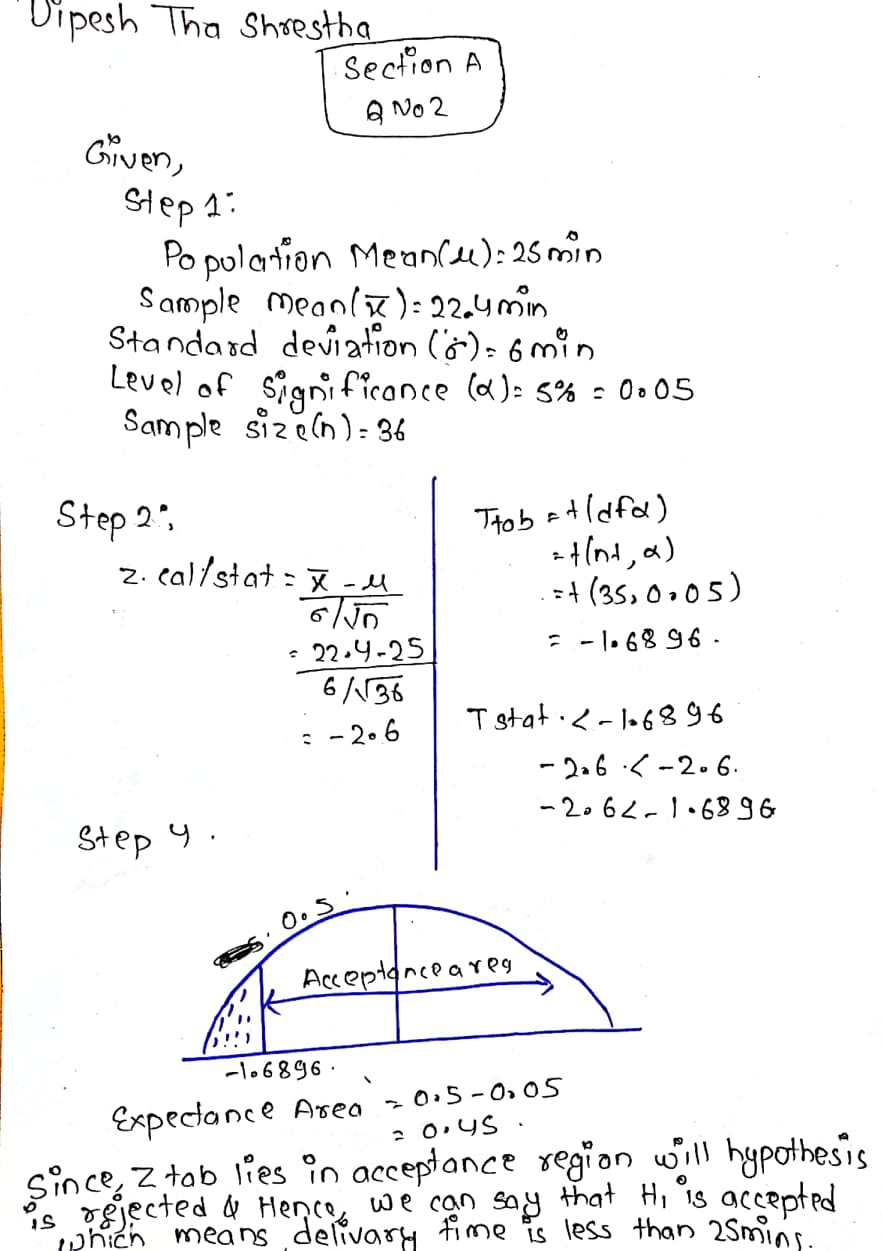 Dipesh Tha Shrestha
Section A
Q No 2
Given,
Step 1:
Population Mean(μ) = 25 min
Sample mean(x̄) = 22.4 min
Standard deviation (σ) = 6 min
Level of significance (α) = 5% = 0.05
Sample size(n) = 36
Step 2:
z. cal/stat = x̄ - μ
σ/√n
= 22.4-25
6/√36
= -2.6
Ttab = t(dfα)
= t(n1, α)
= t(35, 0.05)
= -1.6896.
T stat. < -1.6896
-2.6 < -2.6.
-2.6 < -1.6896
Step 4.
0.5
Acceptance area
-1.6896.
Expectance Area = 0.5 - 0.05
= 0.45.
Since, Z tab lies in acceptance region will hypothesis
is rejected & Hence, we can say that H₁ is accepted
which means delivary time is less than 25mins.